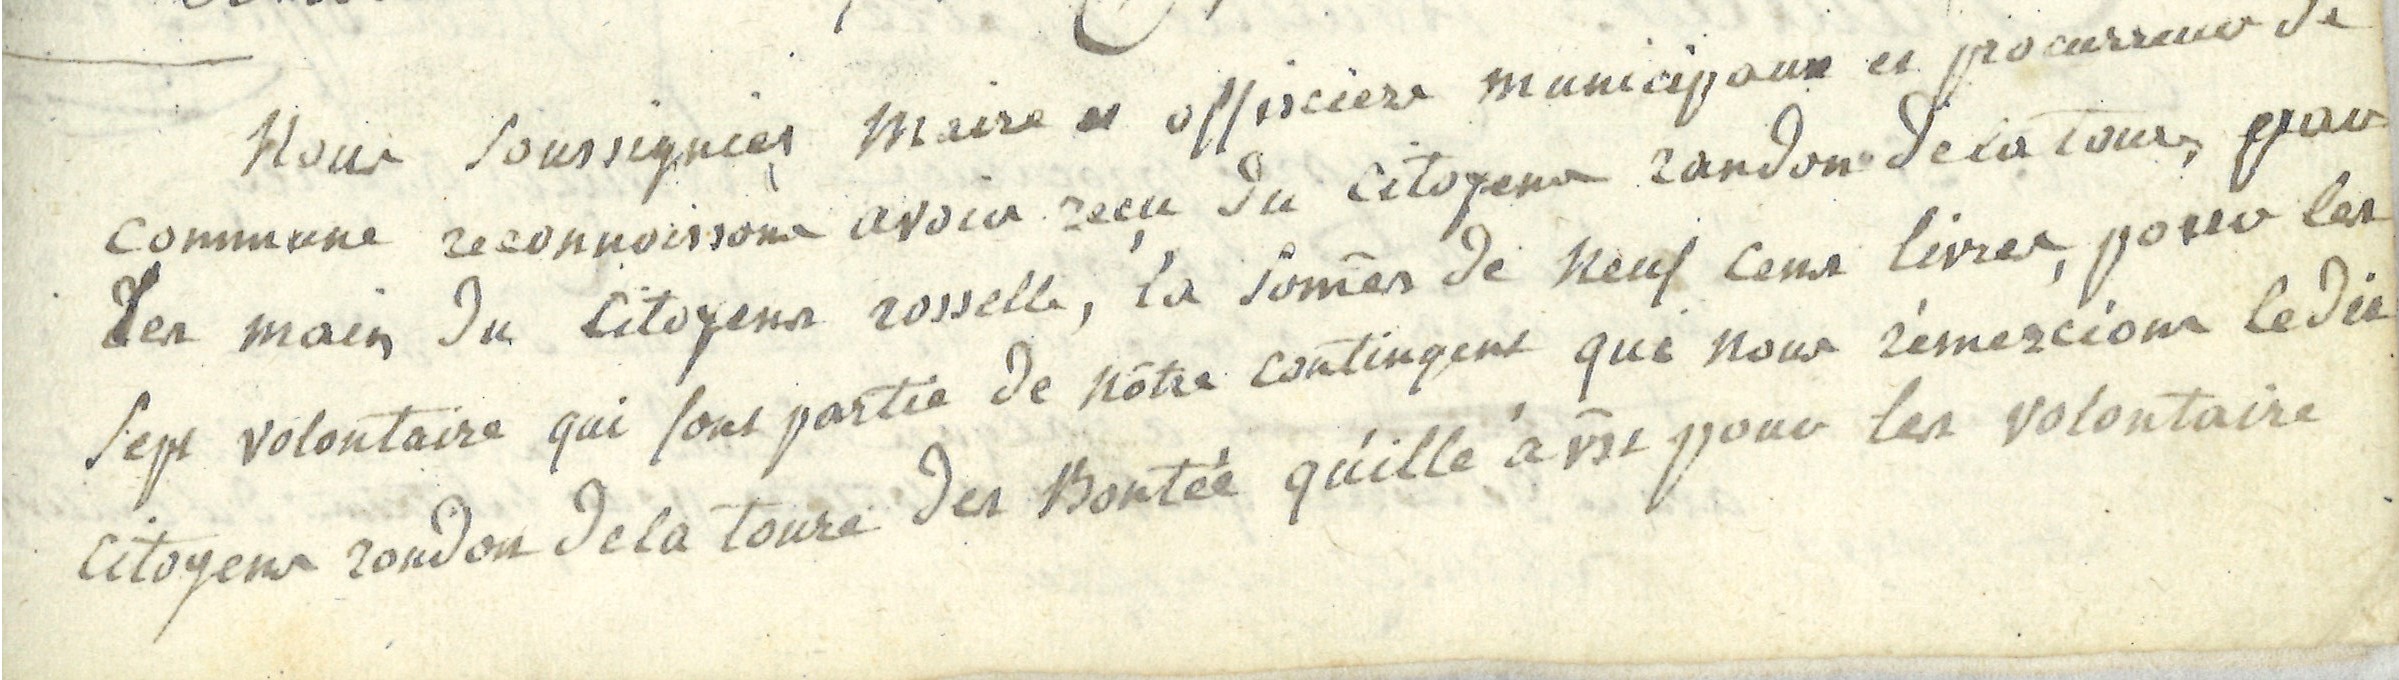 Nous soussignies Maire et offisciers municipaux et procurreur de
commune reconnoissons avoir reçu du citoyens randon de la tour, par
les main du citoyens rosselle, la somes de neuf cens livres, pour les
sept volontaire qui font partie de nôtre contingent qui nous rémercions ledit
citoyens randon de la toure des Bontée quille a pour les volontaire